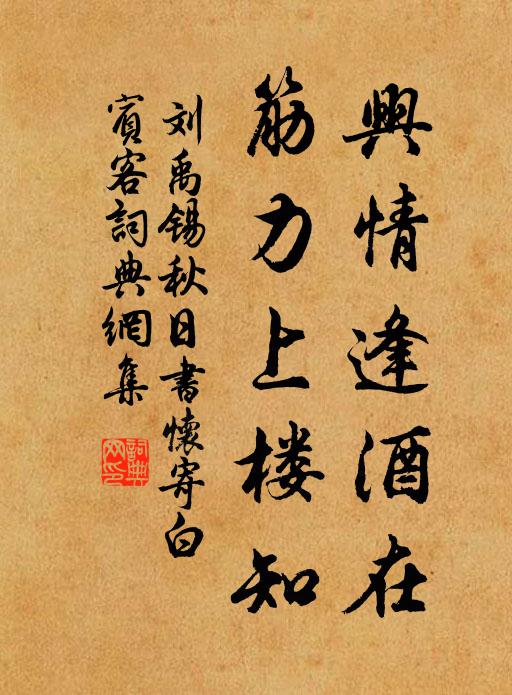 興情逢酒在
筋力上楼知
刘禹锡秋日書懷寄白
賓客詞典網集
詞典網印